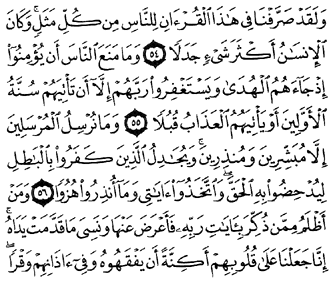 وَلَقَدْ صَرَّفْنَا فِي هَٰذَا ٱلْقُرْءَانِ لِلنَّاسِ مِن كُلِّ مَثَلٍ وَكَانَ
ٱلْإِنسَٰنُ أَكْثَرَ شَىْءٍ جَدَلًا ٥٤ وَمَا مَنَعَ ٱلنَّاسَ أَن يُؤْمِنُوٓا۟
إِذْ جَآءَهُمُ ٱلْهُدَىٰ وَيَسْتَغْفِرُوا۟ رَبَّهُمْ إِلَّآ أَن تَأْتِيَهُمْ سُنَّةُ
ٱلْأَوَّلِينَ أَوْ يَأْتِيَهُمُ ٱلْعَذَابُ قُبُلًا ٥٥ وَمَا نُرْسِلُ ٱلْمُرْسَلِينَ
إِلَّا مُبَشِّرِينَ وَمُنذِرِينَ ۚ وَيُجَٰدِلُ ٱلَّذِينَ كَفَرُوا۟ بِٱلْبَٰطِلِ
لِيُدْحِضُوا۟ بِهِ ٱلْحَقَّ ۖ وَٱتَّخَذُوٓا۟ ءَايَٰتِى وَمَآ أُنذِرُوا۟ هُزُوًا ٥٦ وَمَنْ
أَظْلَمُ مِمَّن ذُكِّرَ بِـَٔايَٰتِ رَبِّهِۦ فَأَعْرَضَ عَنْهَا وَنَسِىَ مَا قَدَّمَتْ يَدَاهُ ۚ
إِنَّا جَعَلْنَا عَلَىٰ قُلُوبِهِمْ أَكِنَّةً أَن يَفْقَهُوهُ وَفِىٓ ءَاذَانِهِمْ وَقْرًا ۖ